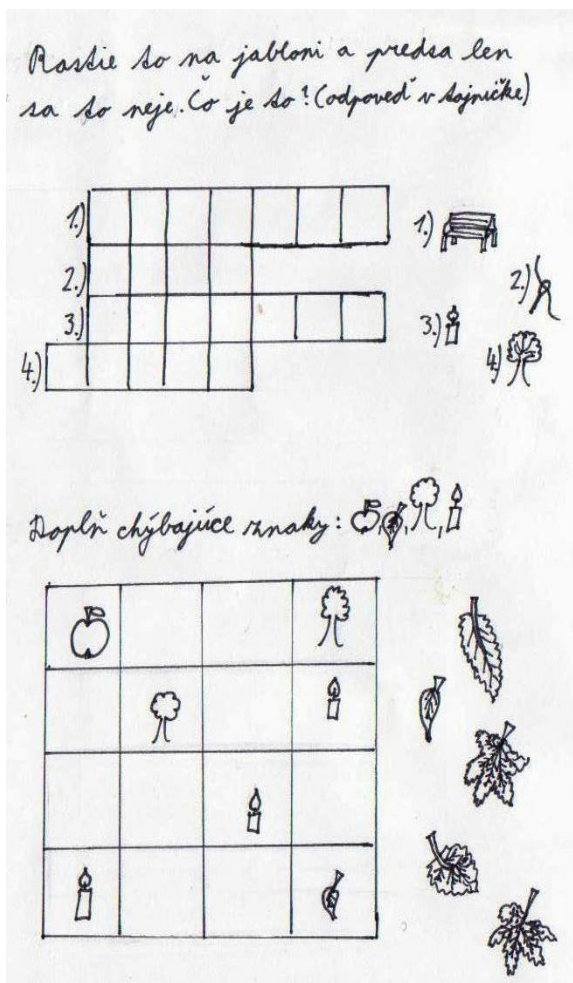 Rastie to na jabloni a predsa len
sa to neje. Čo je to? (odpoveď v tajničke)
1.)
1.)
2.)
2.)
3.)
3.)
4.)
4.)
Doplň chýbajúce znaky: